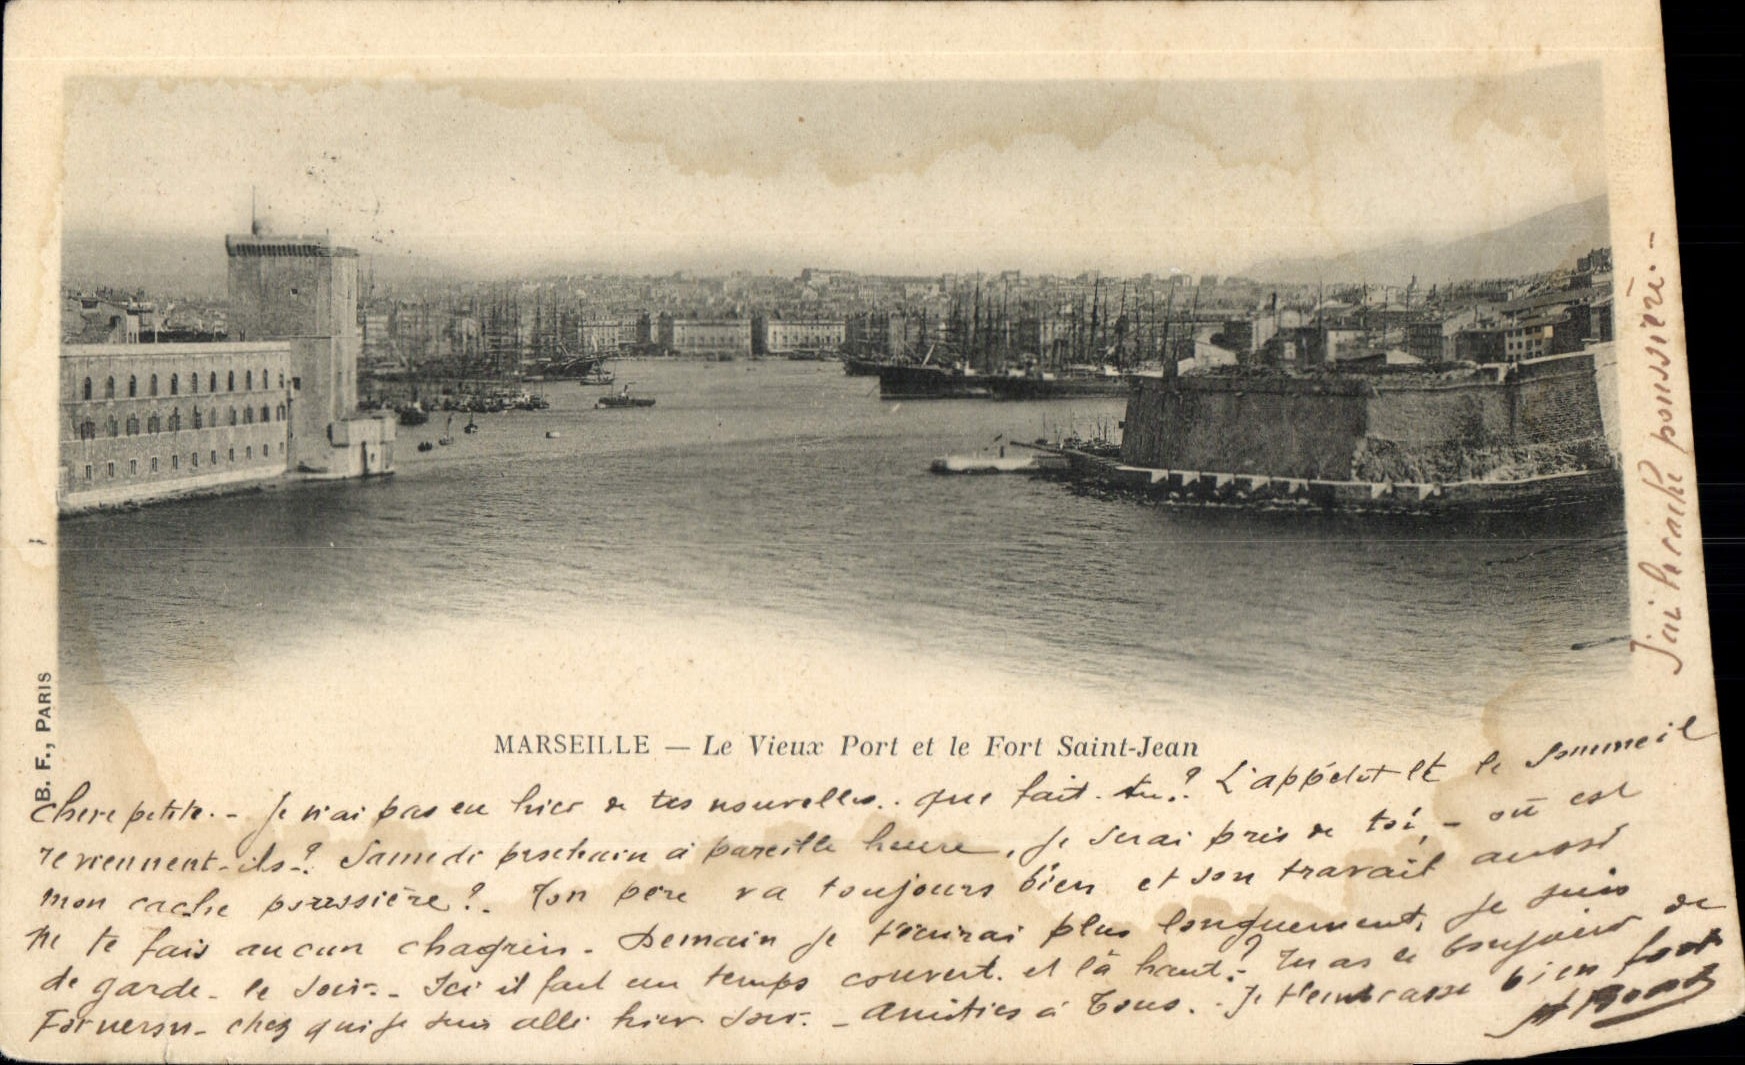 MARSEILLE — Le Vieux Port et le Fort Saint-Jean
B. F., PARIS
chere petite. - Je n'ai pas eu hier de tes nouvelles.. que fait-tu? L'appétit et le sommeil
reviennent-ils-? Samedi prochain à pareille heure, je serai près de toi, - où est
mon cache poussière?. Ton père va toujours bien et son travail aussi
Ne te fais aucun chagrin - Demain je t'écrirai plus longuement, je suis
de garde - le soir. - Ici il fait un temps couvert. et là haut? - Tu as le bonjour de
chez qui je suis allé hier soir. - Amitiés à Tous. - Je t'embrasse bien fort
J'ai le cache poussière. -